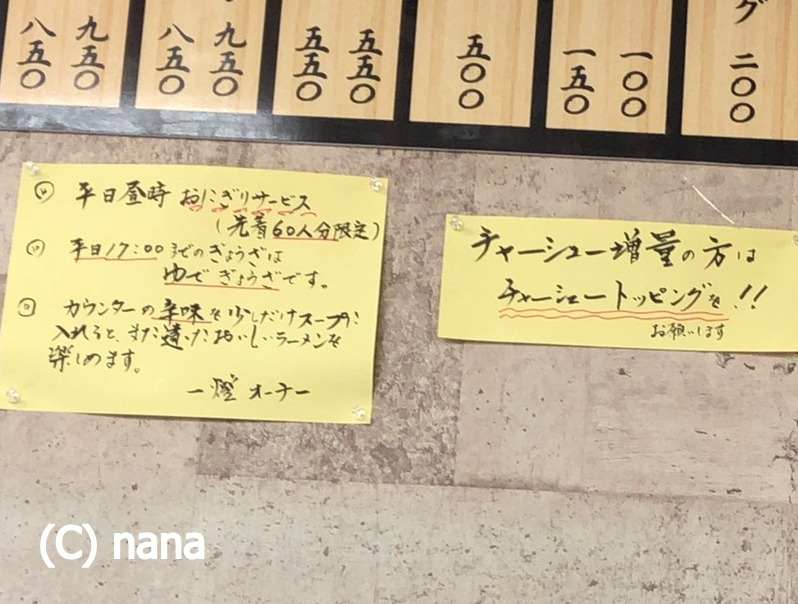 八五〇
九五〇
八五〇
九五〇
五五〇
五五〇
五〇〇
一五〇
一〇〇
グ 二〇〇
◎ 平日昼時 おにぎりサービス
(先着60人分限定)
◎ 平日17:00までのぎょうざは
ゆでぎょうざです。
◎ カウンターの辛味を少しだけスープに
入れると、また違ったおいしいラーメンを
楽しめます。
一燈 オーナー
チャーシュー増量の方は
チャーシュートッピングを!!
お願いします
(C) nana